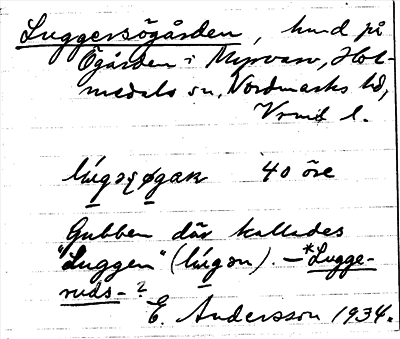 Luggersögården, hmd på
Ögården i Myrvarv, Hol-
medals sn, Nordmarks hd,
Vrml l.
40 öre
Gubben där kallades
"Luggen" (lúgən). – *Lugge-
ruds- ?
E. Andersson 1934.